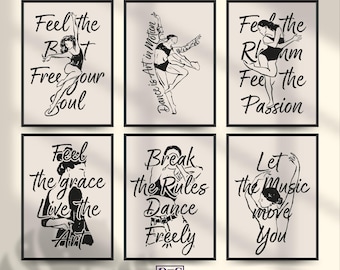 Feel the
Free your
Soul
Dance is Art in Motion
Feel the
Feel the
Passion
Feel
the grace
Live the
Art
Break
the Rules
Dance
Freely
Let
the Music
move
You